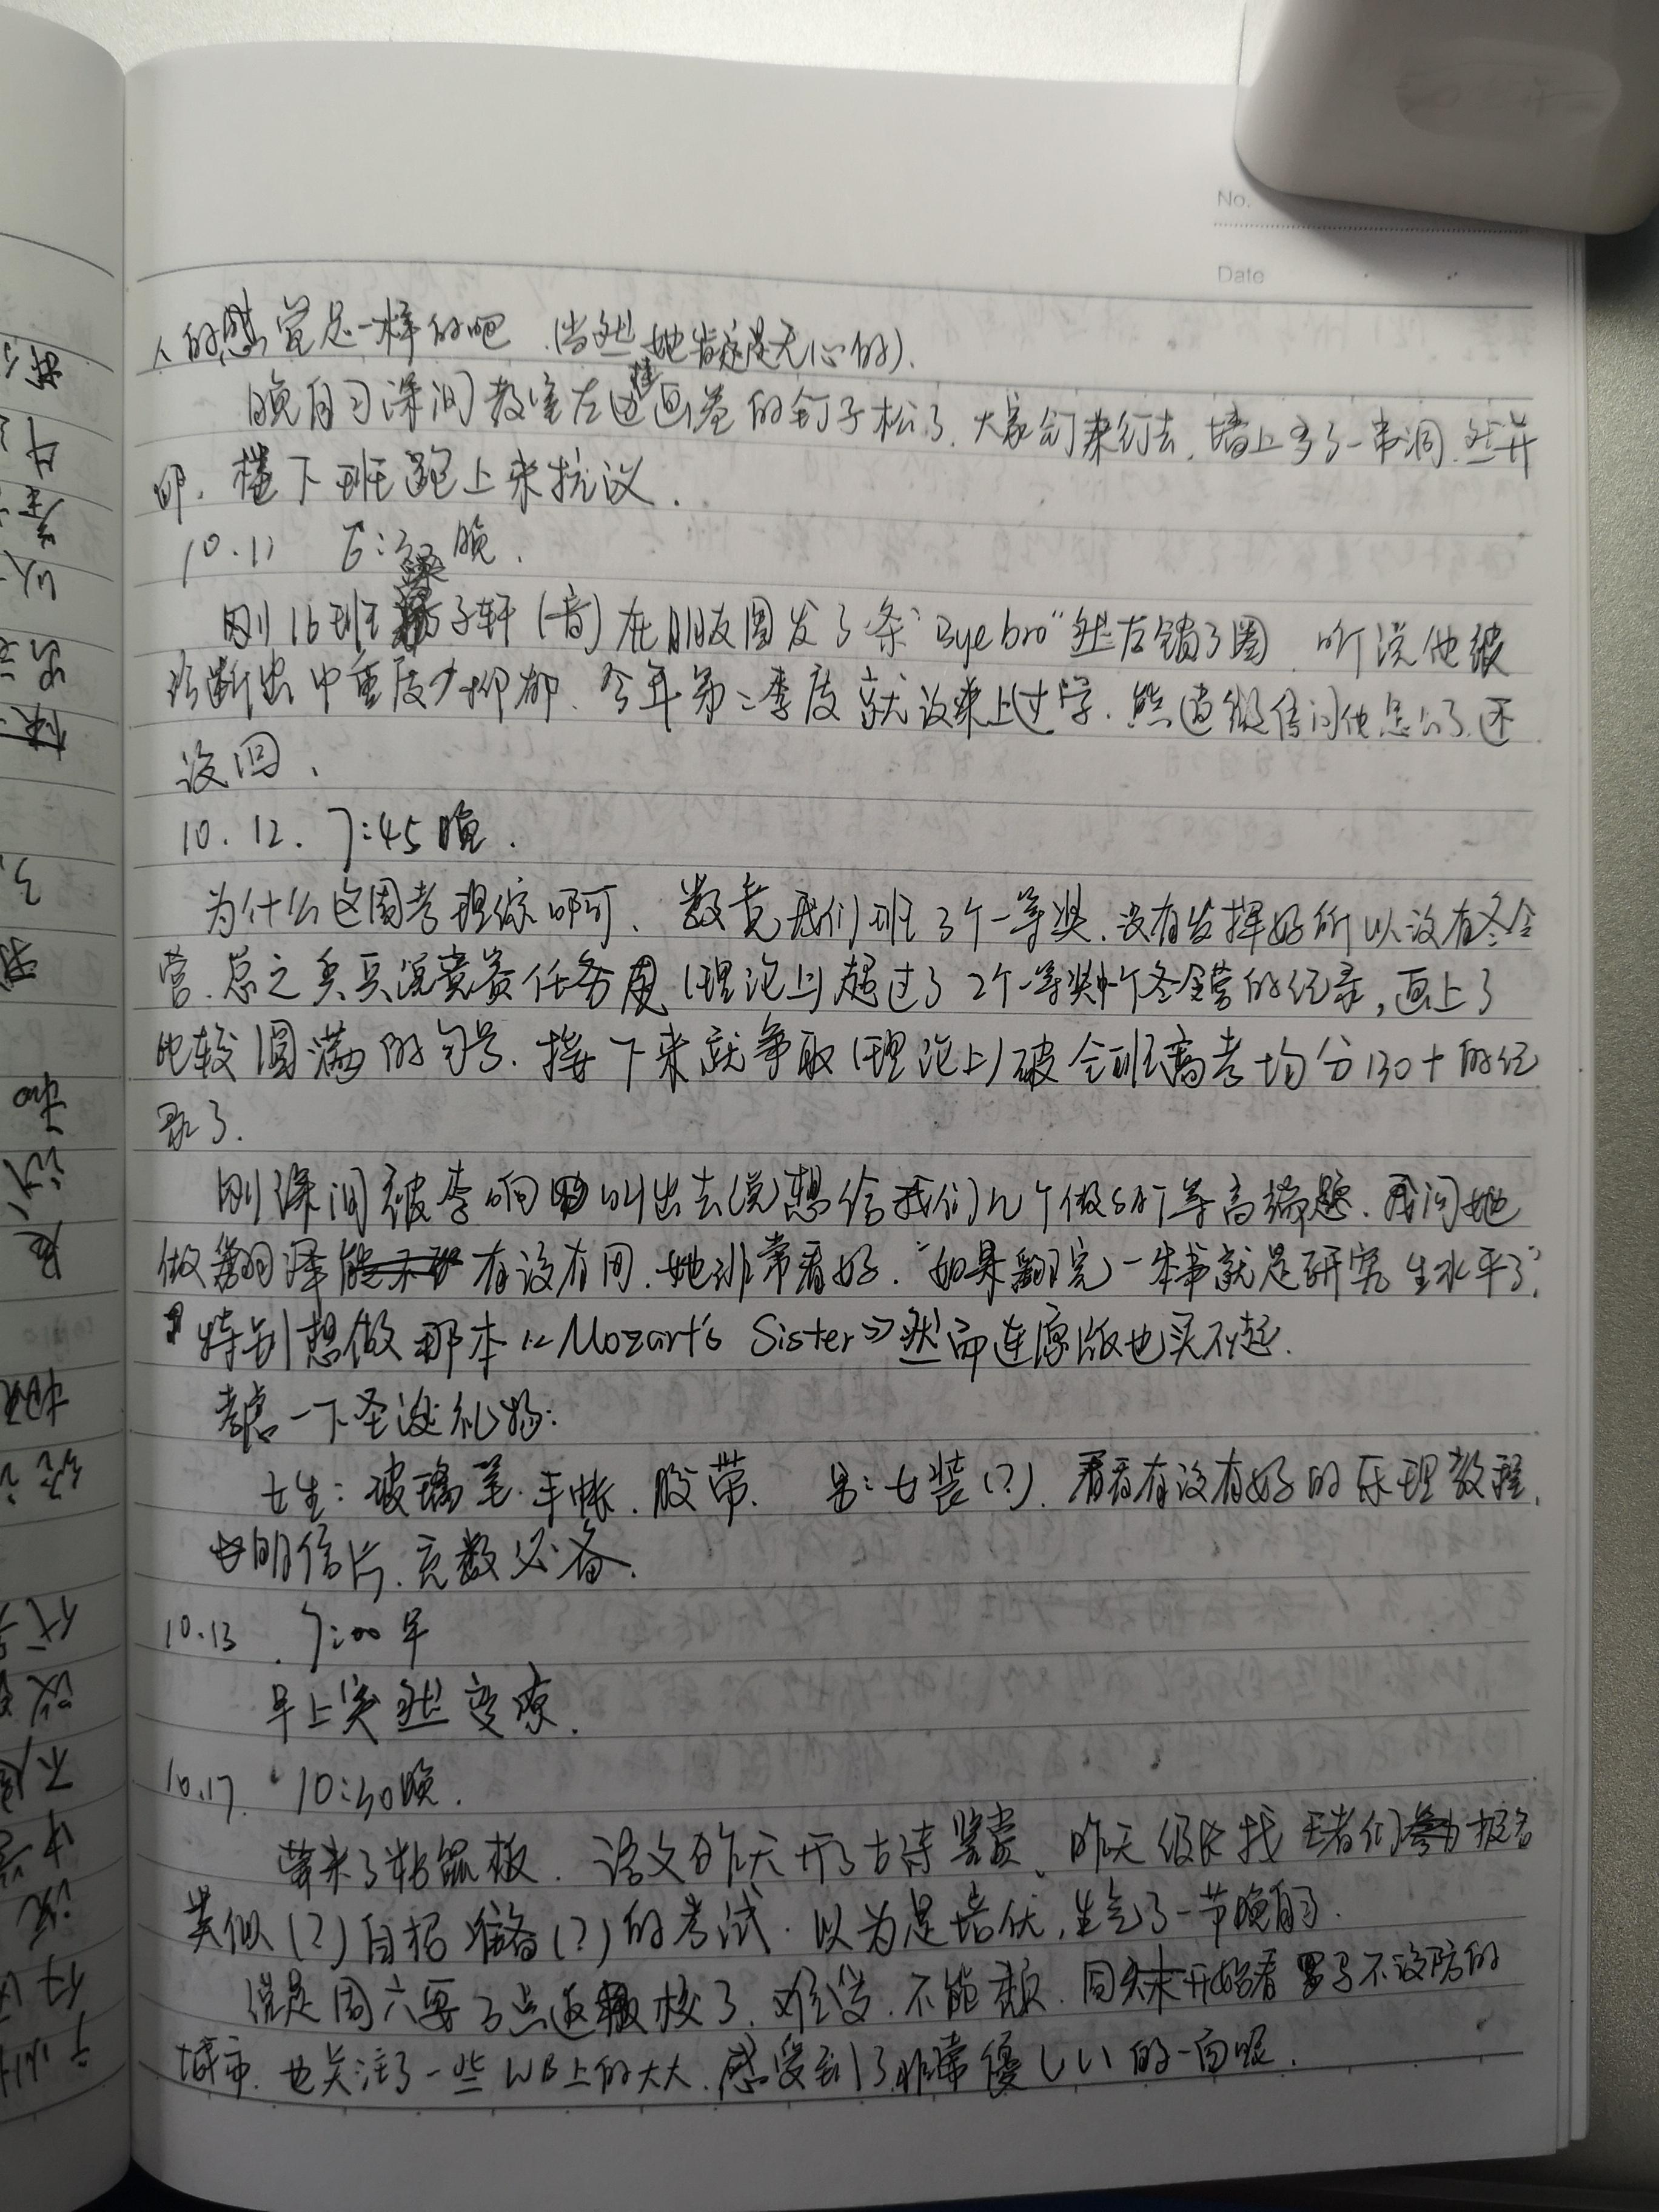 No.
Date
人的感觉是一样的吧.(当然她肯定是无心的).
晚自习深间教室左边画卷的钉子松了.大家钉来钉去,墙上多了一串洞.然并
卵.楼下班跑上来抗议.
10.11 晚.
刚16班子轩(音)在朋友圈发了条"Bye bro"然后锁了圈.听说他被
诊断出中重度抑郁.今年第二季度就没来上过学.熊造微信问他怎么了还
没回.
10.12. 7:45晚.
为什么这周考理综啊.数竞我们班3个一等奖.没有发挥好所以没有冬令
营.总之兵兵说竞赛任务(理论上)超过了2个一等奖个冬令营的纪录,画上了
比较圆满的句号.接下来就争取(理论上)破全班高考均分130+的纪
录了.
刚深间被李响叫出去(说)想给我们几个做等高端题.我问她
做翻译有没有用.她非常看好."如果翻完一本书就是研究生水平了".
特别想做那本《Mozart's Sister》然而连原版也买不起.
考虑一下圣诞礼物:
女生:玻璃笔.手帐.胶带. 男:女装(?).看看有没有好的乐理教程.
明信片.充数必备.
10.13 7:00早
早上突然变凉.
10.17. 10:30晚.
带来了粘鼠板.语文昨天开了古诗鉴赏.昨天级长找王者们报名
类似(?)自招准备(?)的考试.以为是培优,生气了一节晚自习.
说是周六要3点返校了.难受.不能颓.回头来开始看男子不设防的
城市.也关注了一些WB上的大大.感受到了非常優しい的一面呢.